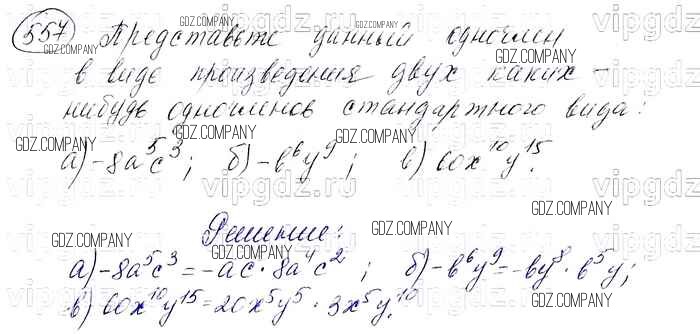 557 Представьте данный одночлен
в виде произведения двух каких-
нибудь одночленов стандартного вида:
а) -8a⁵c³; б) -b⁶y⁹; в) 60x¹⁰y¹⁵.
Решение:
а) -8a⁵c³ = -ac · 8a⁴c²; б) -b⁶y⁹ = -by⁸ · b⁵y;
в) 60x¹⁰y¹⁵ = 20x⁵y⁵ · 3x⁵y¹⁰.